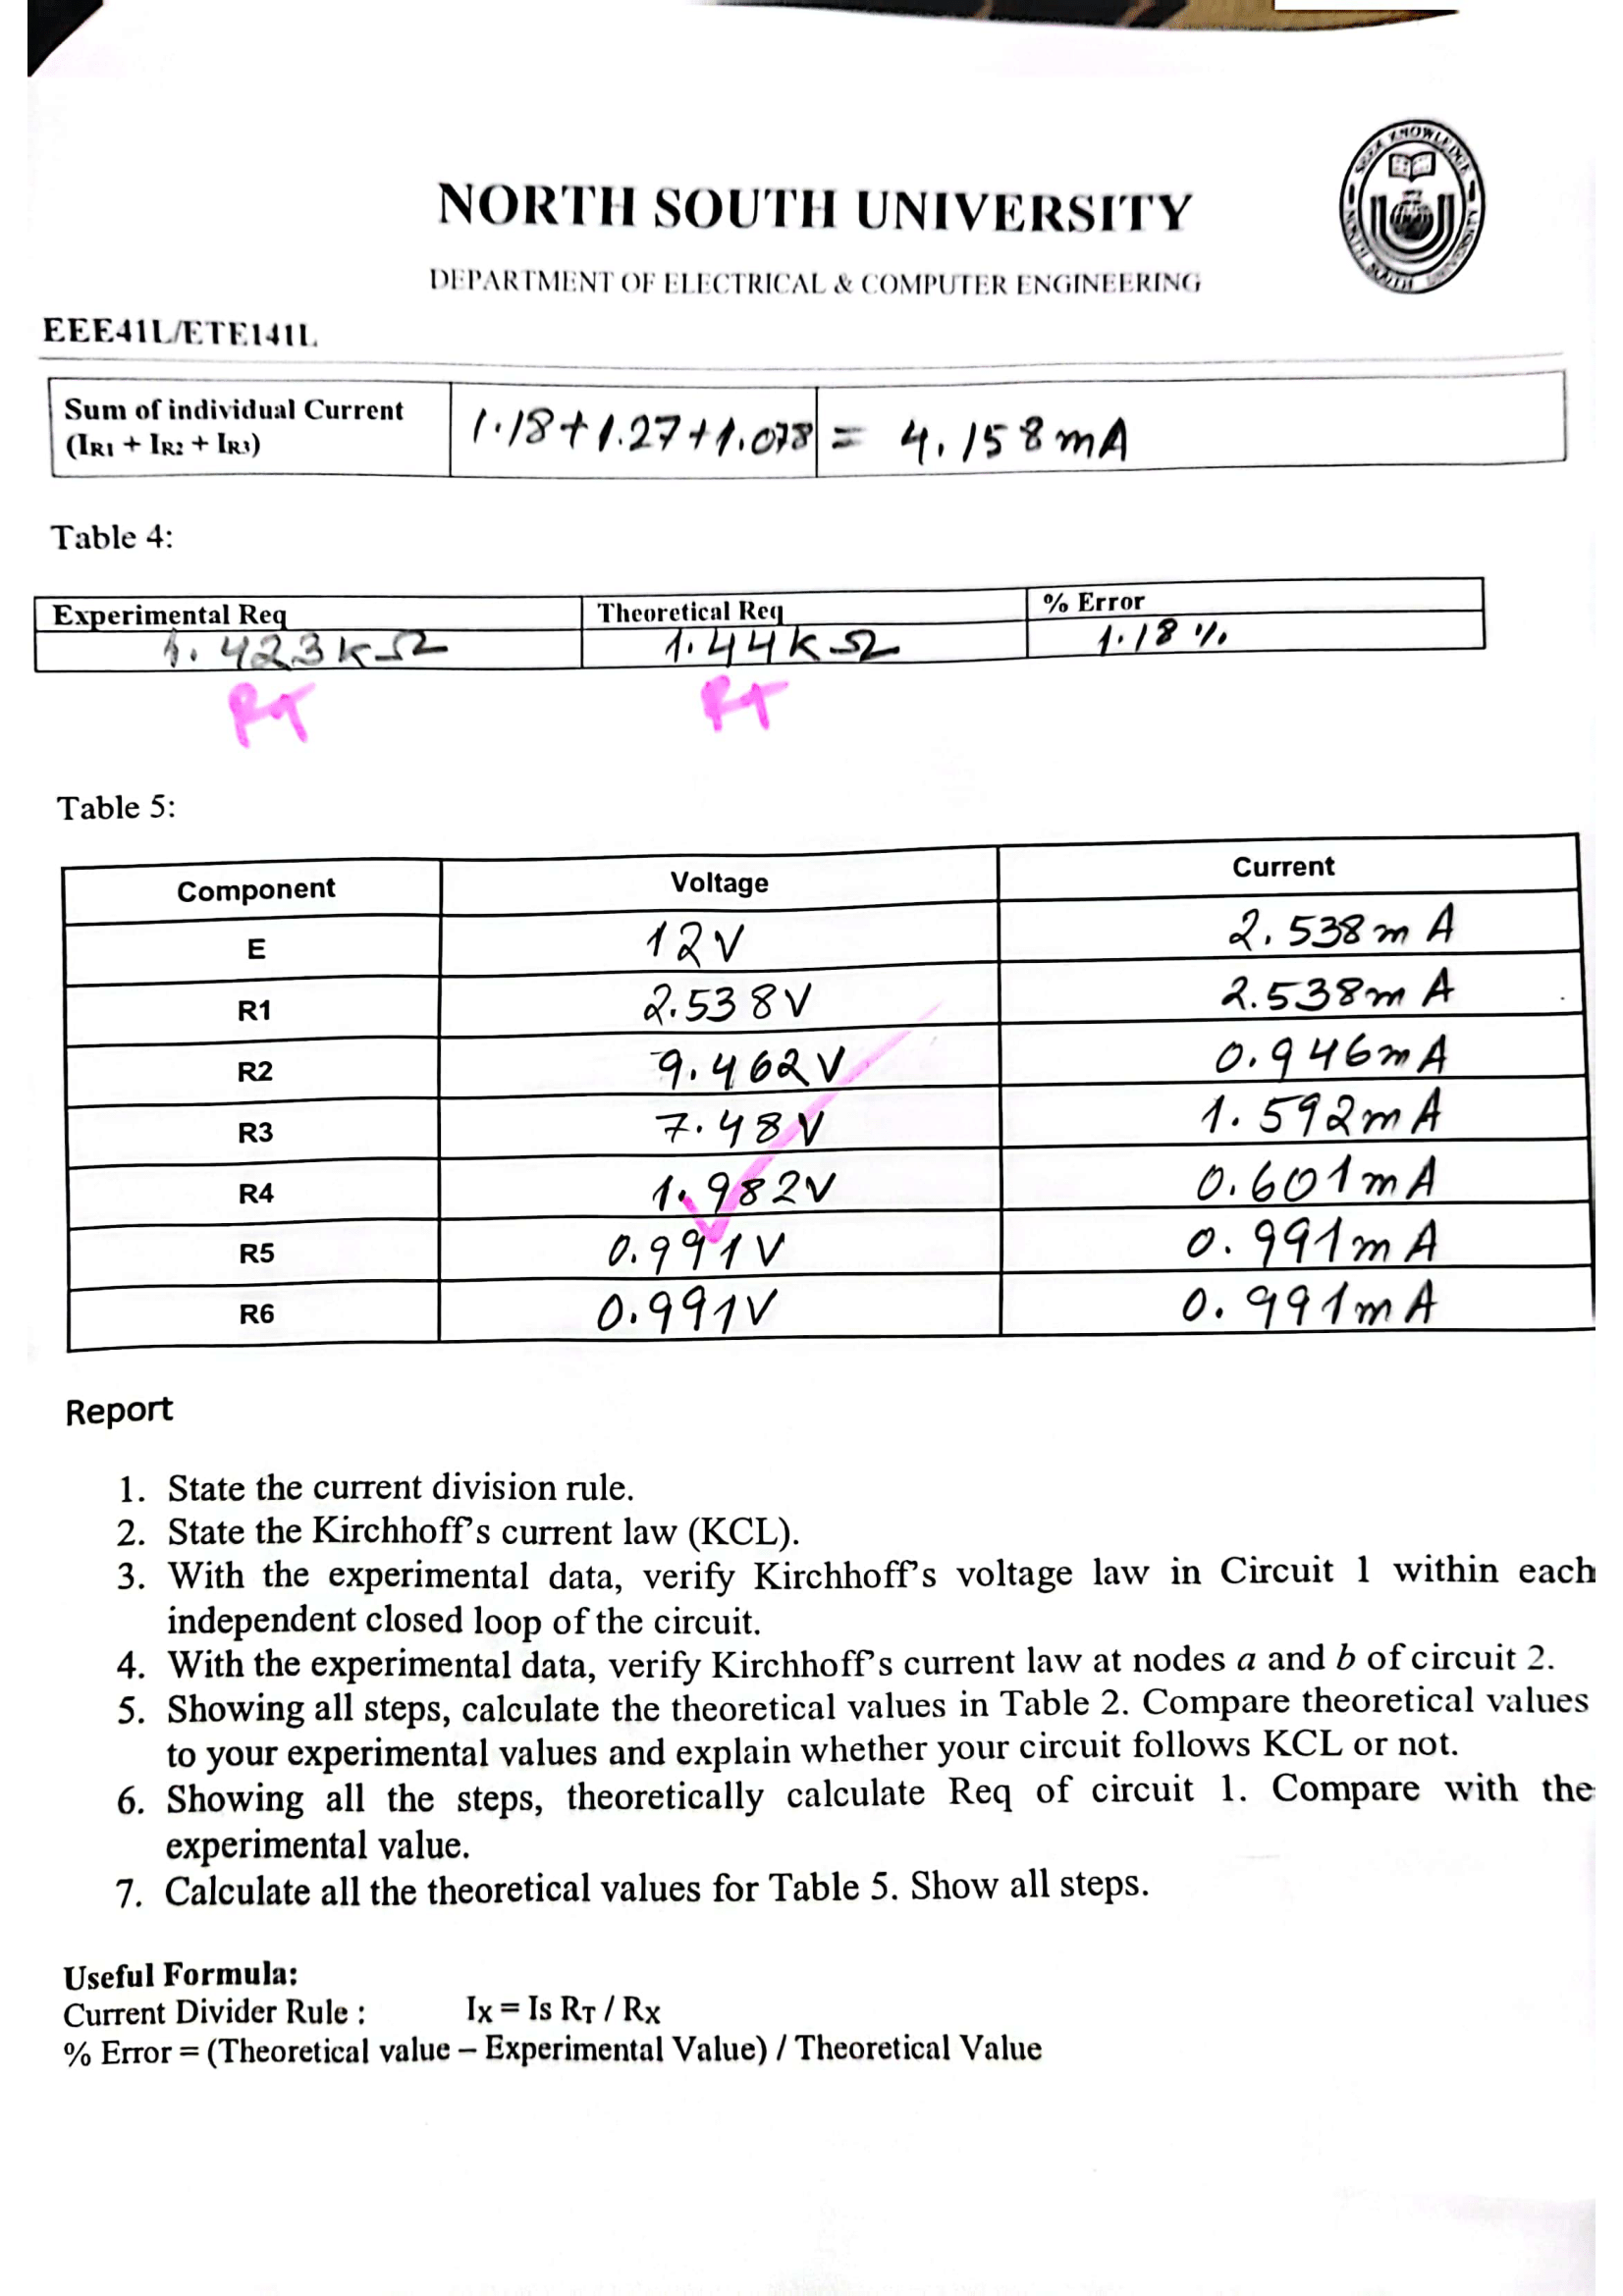 SEEK KNOWLEDGE
NORTH SOUTH UNIVERSITY
NORTH SOUTH UNIVERSITY
DEPARTMENT OF ELECTRICAL & COMPUTER ENGINEERING
EEE41L/ETE141L
Sum of individual Current (IR1 + IR2 + IR3) 1.18+1.27+1.078 = 4.158mA
Table 4:
Experimental Req Theoretical Req % Error
1.423kΩ 1.44kΩ 1.18%
RT RT
Table 5:
Component Voltage Current
E 12V 2.538mA
R1 2.538V 2.538mA
R2 9.462V 0.946mA
R3 7.48V 1.592mA
R4 1.982V 0.601mA
R5 0.991V 0.991mA
R6 0.991V 0.991mA
Report
1. State the current division rule.
2. State the Kirchhoff's current law (KCL).
3. With the experimental data, verify Kirchhoff's voltage law in Circuit 1 within each
independent closed loop of the circuit.
4. With the experimental data, verify Kirchhoff's current law at nodes a and b of circuit 2.
5. Showing all steps, calculate the theoretical values in Table 2. Compare theoretical values
to your experimental values and explain whether your circuit follows KCL or not.
6. Showing all the steps, theoretically calculate Req of circuit 1. Compare with the
experimental value.
7. Calculate all the theoretical values for Table 5. Show all steps.
Useful Formula:
Current Divider Rule : IX = Is RT / RX
% Error = (Theoretical value – Experimental Value) / Theoretical Value